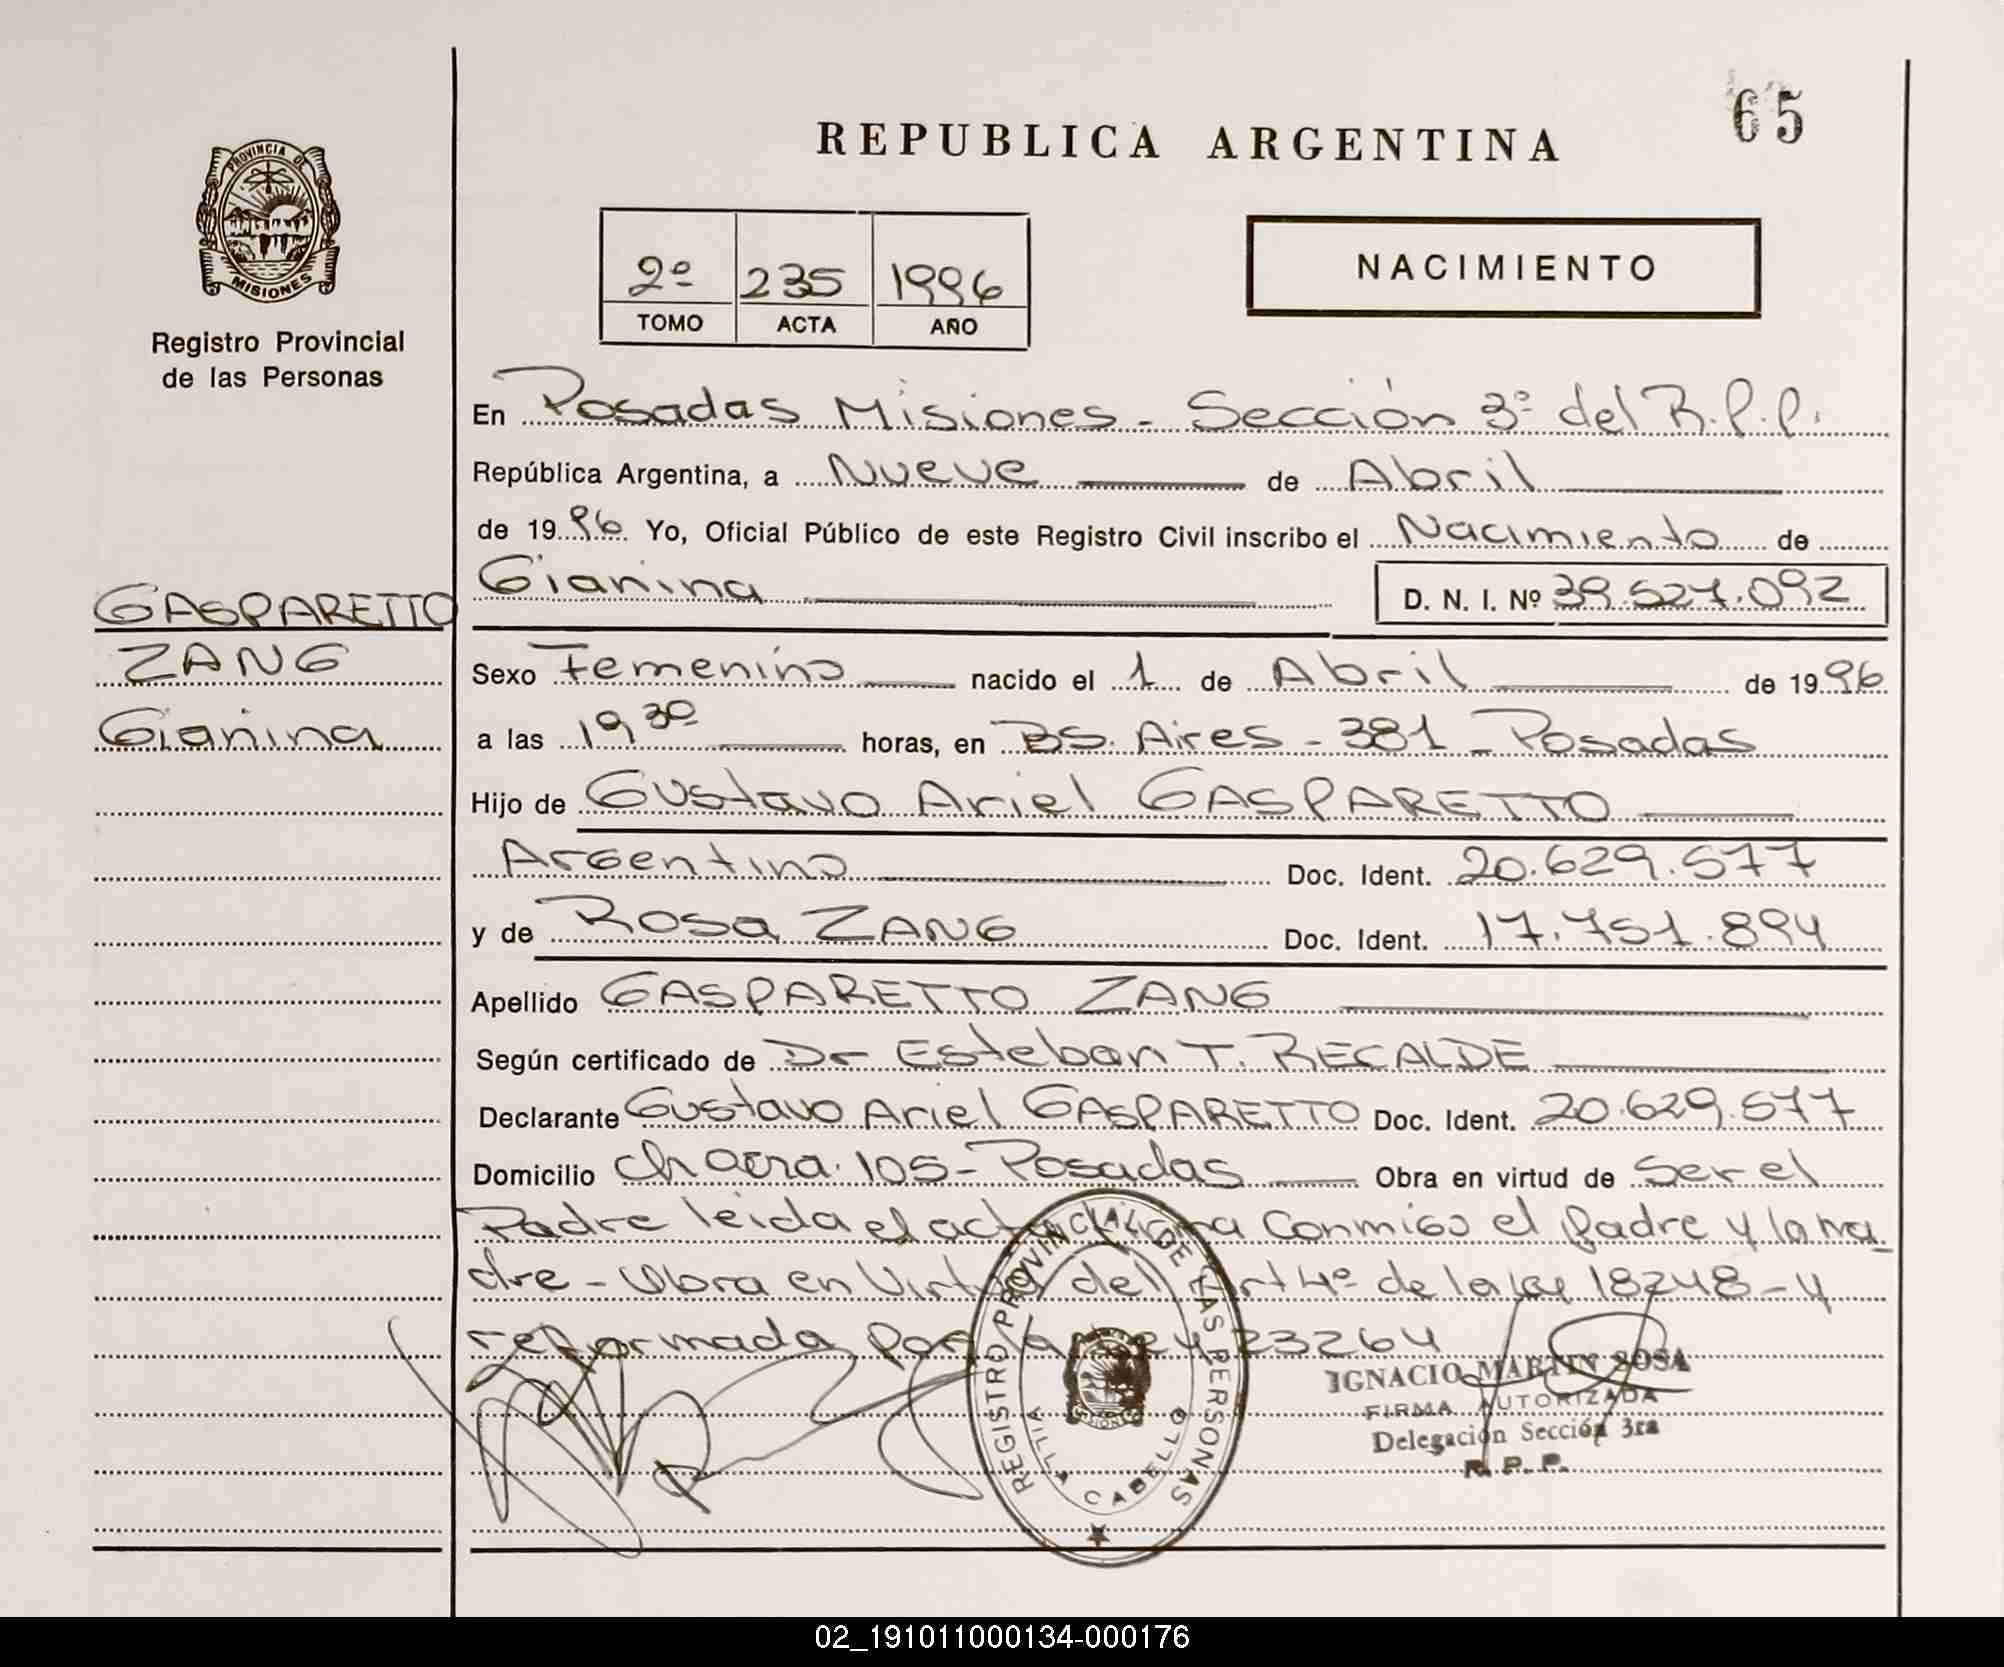 65
REPUBLICA ARGENTINA
PROVINCIA DE
MISIONES
Registro Provincial
de las Personas
2º 235 1996
TOMO ACTA AÑO
NACIMIENTO
En Posadas Misiones - Sección 3ª del R.P.P.
República Argentina, a Nueve de Abril
de 1996 Yo, Oficial Público de este Registro Civil inscribo el Nacimiento de
Gianina D. N. I. Nº 39.527.092
GASPARETTO
ZANG
Gianina
Sexo Femenino nacido el 1 de Abril de 1996
a las 19,30 horas, en BS. Aires - 381 - Posadas
Hijo de Gustavo Ariel GASPARETTO
Argentino Doc. Ident. 20.629.577
y de Rosa ZANG Doc. Ident. 17.751.894
Apellido GASPARETTO ZANG
Según certificado de Dr Esteban T. RECALDE
Declarante Gustavo Ariel GASPARETTO Doc. Ident. 20.629.577
Domicilio chacra 105 - Posadas Obra en virtud de Ser el
Padre leida el acta firma conmigo el padre y la ma
dre - Obra en Virtud del Art 4º de la ley 18248 - y
reformada por la ley 23264
REGISTRO PROVINCIAL DE LAS PERSONAS
VILLA CABELLO
MISIONES
IGNACIO MARTIN SOSA
FIRMA AUTORIZADA
Delegación Sección 3ra
R. P. P.
02_191011000134-000176